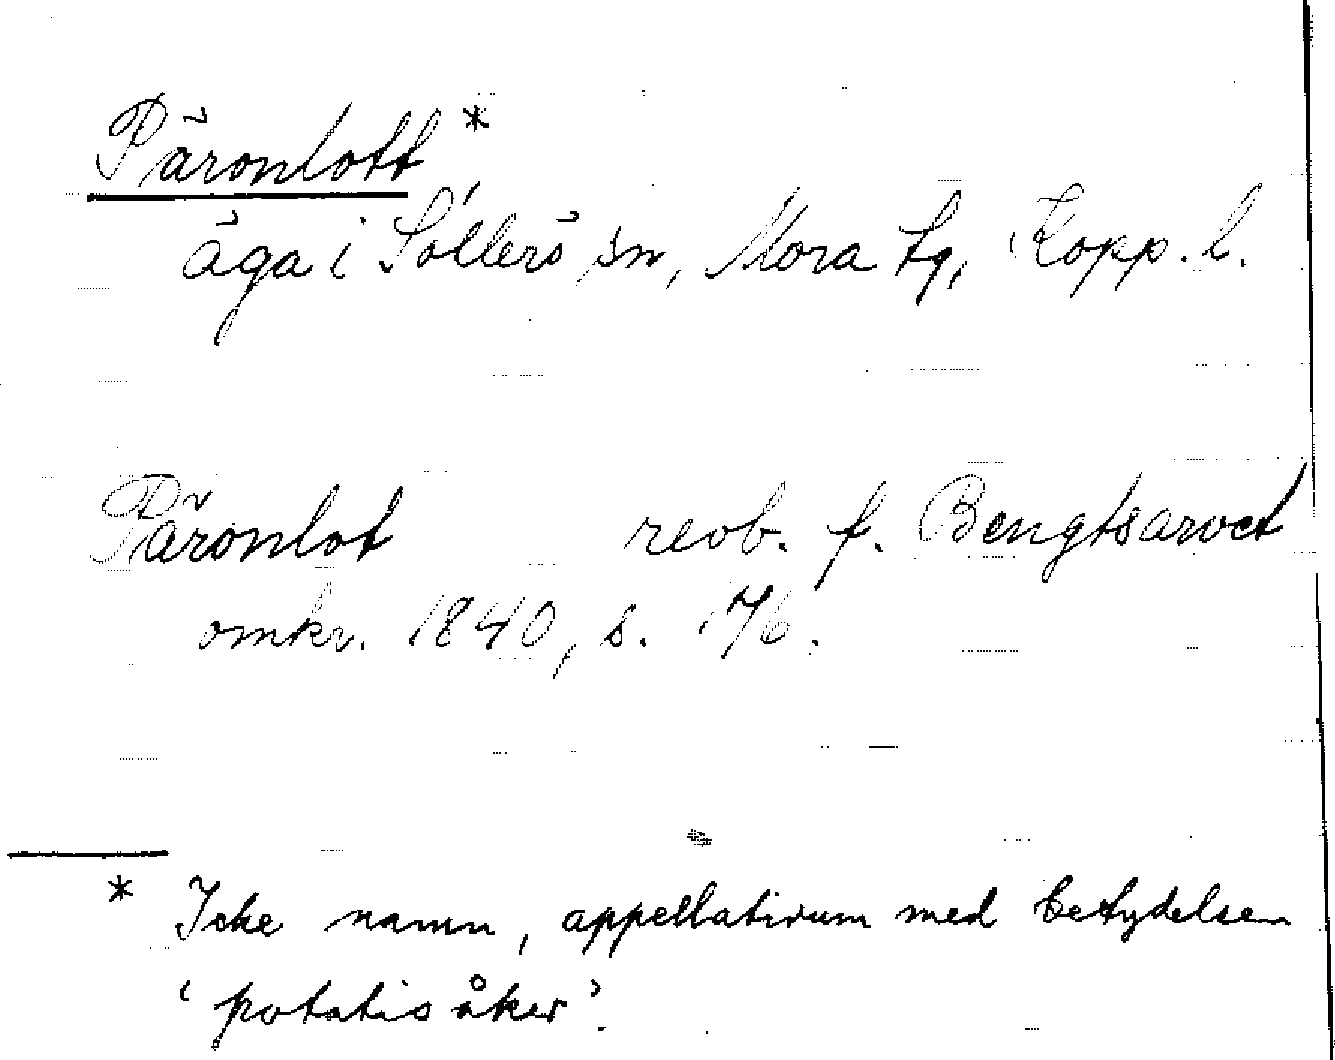 Päronlott *
äga i Sollerö sn, Mora tg, Kopp. l.
Päronlot reob. f. Bengtsarvet
omkr. 1840, s. 176.
* Icke namn, appellativum med betydelsen
‘potatisåker’.